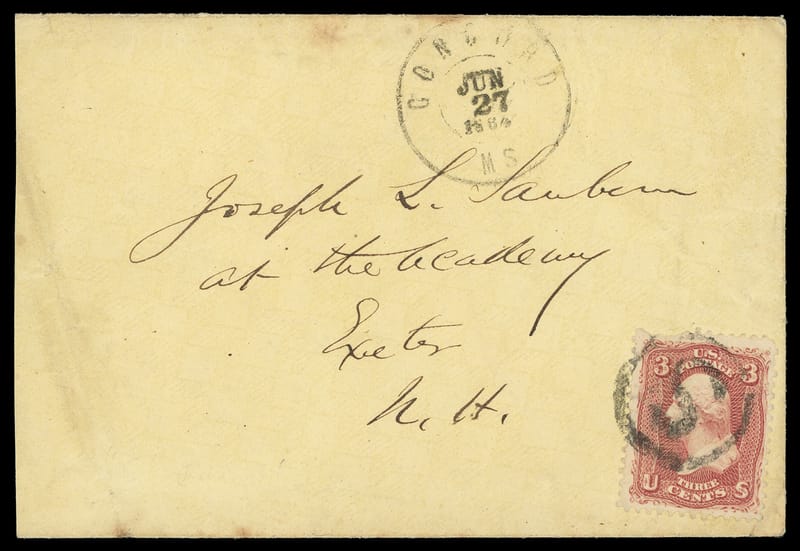 CONCORD
JUN
27
1864
MS
Joseph L. Sanborn
at the Academy
Exeter
N. H.
U.S.
POSTAGE
3 3
THREE
U CENTS S